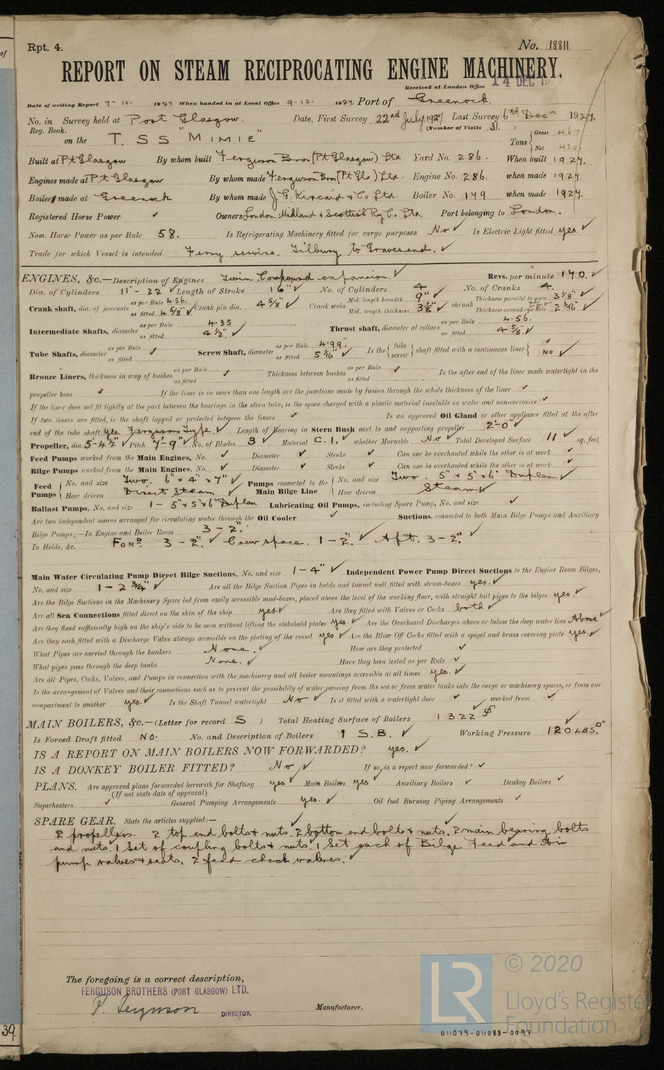 Rpt. 4.
No. 18811
REPORT ON STEAM RECIPROCATING ENGINE MACHINERY.
Received at London Office 14 DEC
Date of writing Report 7-12- 1927 When handed in at Local Office 9-12- 1927 Port of Greenock
No. in Reg. Book. Survey held at Port Glasgow. Date, First Survey 22nd July 1927 Last Survey 6th Decr 1927.
(Number of Visits
on the T. SS "MIMIE" Tons Gross Net
Built at Pt Glasgow By whom built Ferguson Bros (Pt Glasgow) Ltd Yard No. 286. When built 1927.
Engines made at Pt Glasgow By whom made Ferguson Bros (Pt Gl) Ltd. Engine No. 286. when made 1927.
Boilers made at Greenock By whom made J G Kincaid & Co Ltd. Boiler No. 149 when made 1927.
Registered Horse Power ✓ Owners London Midland & Scottish Ry Co. Ltd Port belonging to London.
Nom. Horse Power as per Rule 58. Is Refrigerating Machinery fitted for cargo purposes No ✓ Is Electric Light fitted yes ✓
Trade for which Vessel is intended Ferry service. Tilbury to Gravesend. ✓
ENGINES, &c.—Description of Engines Twin Compound expansion. ✓ Revs. per minute 140. ✓
Dia. of Cylinders 11" - 22 ✓ Length of Stroke 16" ✓ No. of Cylinders 4 ✓ No. of Cranks 4.
Crank shaft, dia. of journals as per Rule 4.56. as fitted 4 5/8" ✓ Crank pin dia. 4 5/8" ✓ Crank webs Mid. length breadth 9" ✓ Mid. length thickness 3 1/8" ✓ shrunk Thickness parallel to axis 3 1/8" ✓ Thickness around eye-hole 2 3/16" ✓
Intermediate Shafts, diameter as per Rule 4.35 as fitted 4 1/2" ✓ Thrust shaft, diameter at collars as per Rule 4.56. as fitted 4 5/8" ✓
Tube Shafts, diameter as per Rule ✓ as fitted Screw Shaft, diameter as per Rule 4.99. as fitted 5 1/16" ✓ Is the tube screw shaft fitted with a continuous liner No ✓
Bronze Liners, thickness in way of bushes as per Rule ✓ as fitted Thickness between bushes as per Rule ✓ as fitted Is the after end of the liner made watertight in the
propeller boss ✓ If the liner is in more than one length are the junctions made by fusion through the whole thickness of the liner ✓
If the liner does not fit tightly at the part between the bearings in the stern tube, is the space charged with a plastic material insoluble in water and non-corrosive ✓
If two liners are fitted, is the shaft lapped or protected between the liners ✓ Is an approved Oil Gland or other appliance fitted at the after
end of the tube shaft yes Ferguson type. ✓ Length of Bearing in Stern Bush next to and supporting propeller 2'-0" ✓
Propeller, dia. 5'-4 1/2" ✓ Pitch 7'-9" ✓ No. of Blades 3 ✓ Material C.I. ✓ whether Moveable No ✓ Total Developed Surface 11 ✓ sq. feet
Feed Pumps worked from the Main Engines, No. ✓ Diameter ✓ Stroke ✓ Can one be overhauled while the other is at work ✓
Bilge Pumps worked from the Main Engines, No. ✓ Diameter ✓ Stroke ✓ Can one be overhauled while the other is at work ✓
Feed Pumps No. and size Two. 6" x 4" x 7" ✓ How driven Direct Steam ✓ Pumps connected to the Main Bilge Line No. and size Two. 5" x 5" x 6" Duplex ✓ How driven Steam ✓
Ballast Pumps, No. and size 1 - 5" x 5" x 6" Duplex Lubricating Oil Pumps, including Spare Pump, No. and size ✓
Are two independent means arranged for circulating water through the Oil Cooler ✓ Suctions, connected to both Main Bilge Pumps and Auxiliary
Bilge Pumps;—In Engine and Boiler Room 3 - 2". ✓
In Holds, &c. FORD 3 - 2". ✓ Crew space. 1 - 2". ✓ Aft. 3 - 2" ✓
Main Water Circulating Pump Direct Bilge Suctions, No. and size 1 - 4" ✓ Independent Power Pump Direct Suctions to the Engine Room Bilges,
No. and size 1 - 2 3/4" ✓ Are all the Bilge Suction Pipes in holds and tunnel well fitted with strum-boxes yes. ✓
Are the Bilge Suctions in the Machinery Space led from easily accessible mud-boxes, placed above the level of the working floor, with straight tail pipes to the bilges yes. ✓
Are all Sea Connections fitted direct on the skin of the ship yes. ✓ Are they fitted with Valves or Cocks both ✓
Are they fixed sufficiently high on the ship's side to be seen without lifting the stokehold plates yes ✓ Are the Overboard Discharges above or below the deep water line Above ✓
Are they each fitted with a Discharge Valve always accessible on the plating of the vessel yes ✓ Are the Blow Off Cocks fitted with a spigot and brass covering plate yes. ✓
What Pipes are carried through the bunkers None. ✓ How are they protected ✓
What pipes pass through the deep tanks None. ✓ Have they been tested as per Rule ✓
Are all Pipes, Cocks, Valves, and Pumps in connection with the machinery and all boiler mountings accessible at all times yes. ✓
Is the arrangement of Valves and their connections such as to prevent the possibility of water passing from the sea or from water tanks into the cargo or machinery spaces, or from one
compartment to another yes. ✓ Is the Shaft Tunnel watertight No ✓ Is it fitted with a watertight door ✓ worked from ✓
MAIN BOILERS, &c.—(Letter for record S ) Total Heating Surface of Boilers 1322 ✓
Is Forced Draft fitted No. No. and Description of Boilers 1 S.B. ✓ Working Pressure 120 LBS.
IS A REPORT ON MAIN BOILERS NOW FORWARDED? yes. ✓
IS A DONKEY BOILER FITTED? No ✓ If so, is a report now forwarded? ✓
PLANS. Are approved plans forwarded herewith for Shafting yes ✓ Main Boilers yes ✓ Auxiliary Boilers ✓ Donkey Boilers ✓
(If not state date of approval)
Superheaters ✓ General Pumping Arrangements yes. ✓ Oil fuel Burning Piping Arrangements ✓
SPARE GEAR. State the articles supplied:—
2 propellers. 2 top end bolts & nuts. 2 bottom end bolts & nuts. 2 main bearing bolts
and nuts. 1 set of coupling bolts & nuts. 1 set each of Bilge Feed and
pump valves & seats. 2 feed check valves. ✓
The foregoing is a correct description,
FERGUSON BROTHERS (PORT GLASGOW) LTD.
P. Ferguson
DIRECTOR.
Manufacturer.
39
LR
© 2020
Lloyd's Register
Foundation
011079-011088-0097